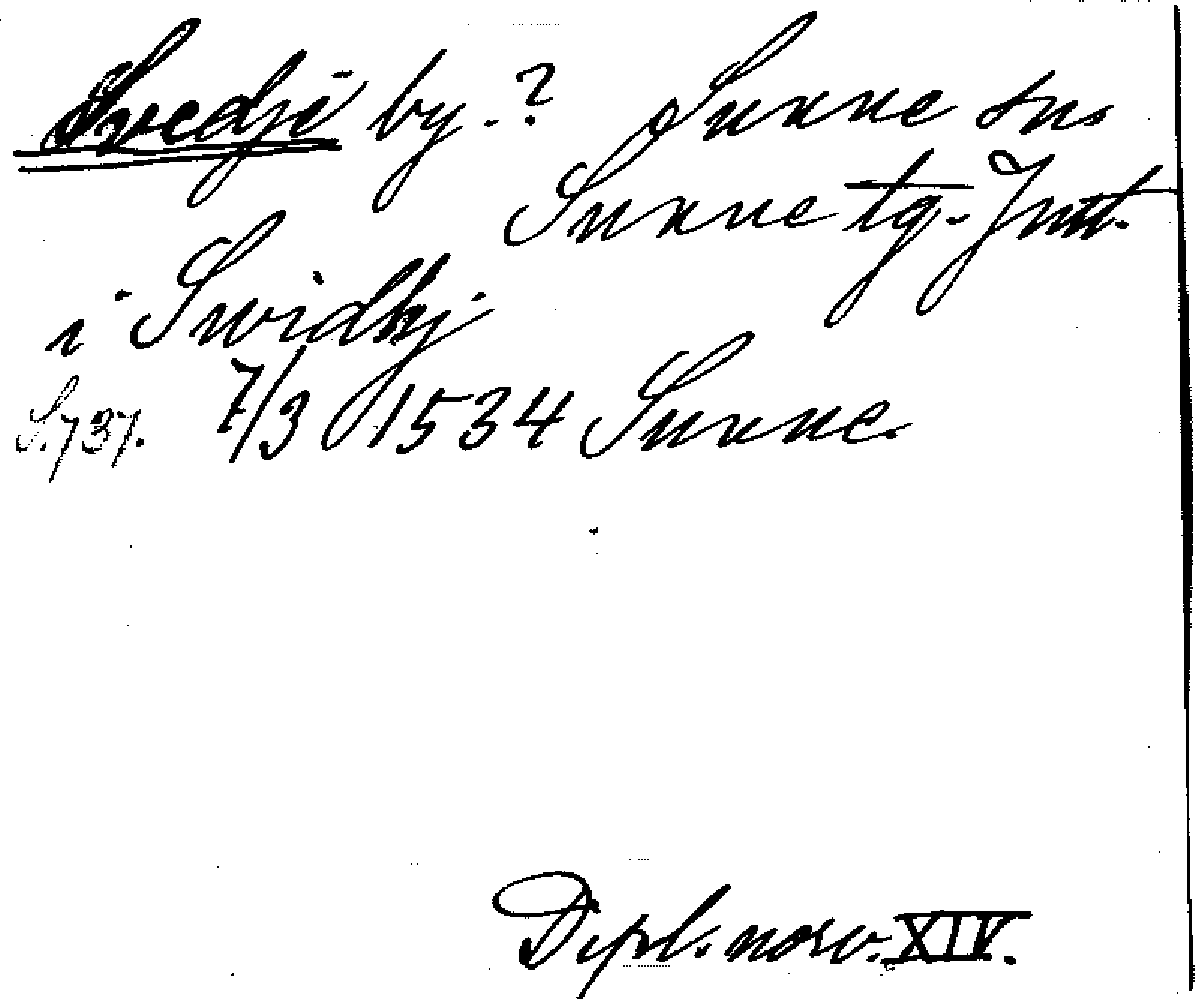 Svedje by.? Sunne sn.
Sunne tg. Jmtl.
i Swidhj
S. 737. 7/3 1534 Sunne.
Dipl. norv. XIV.